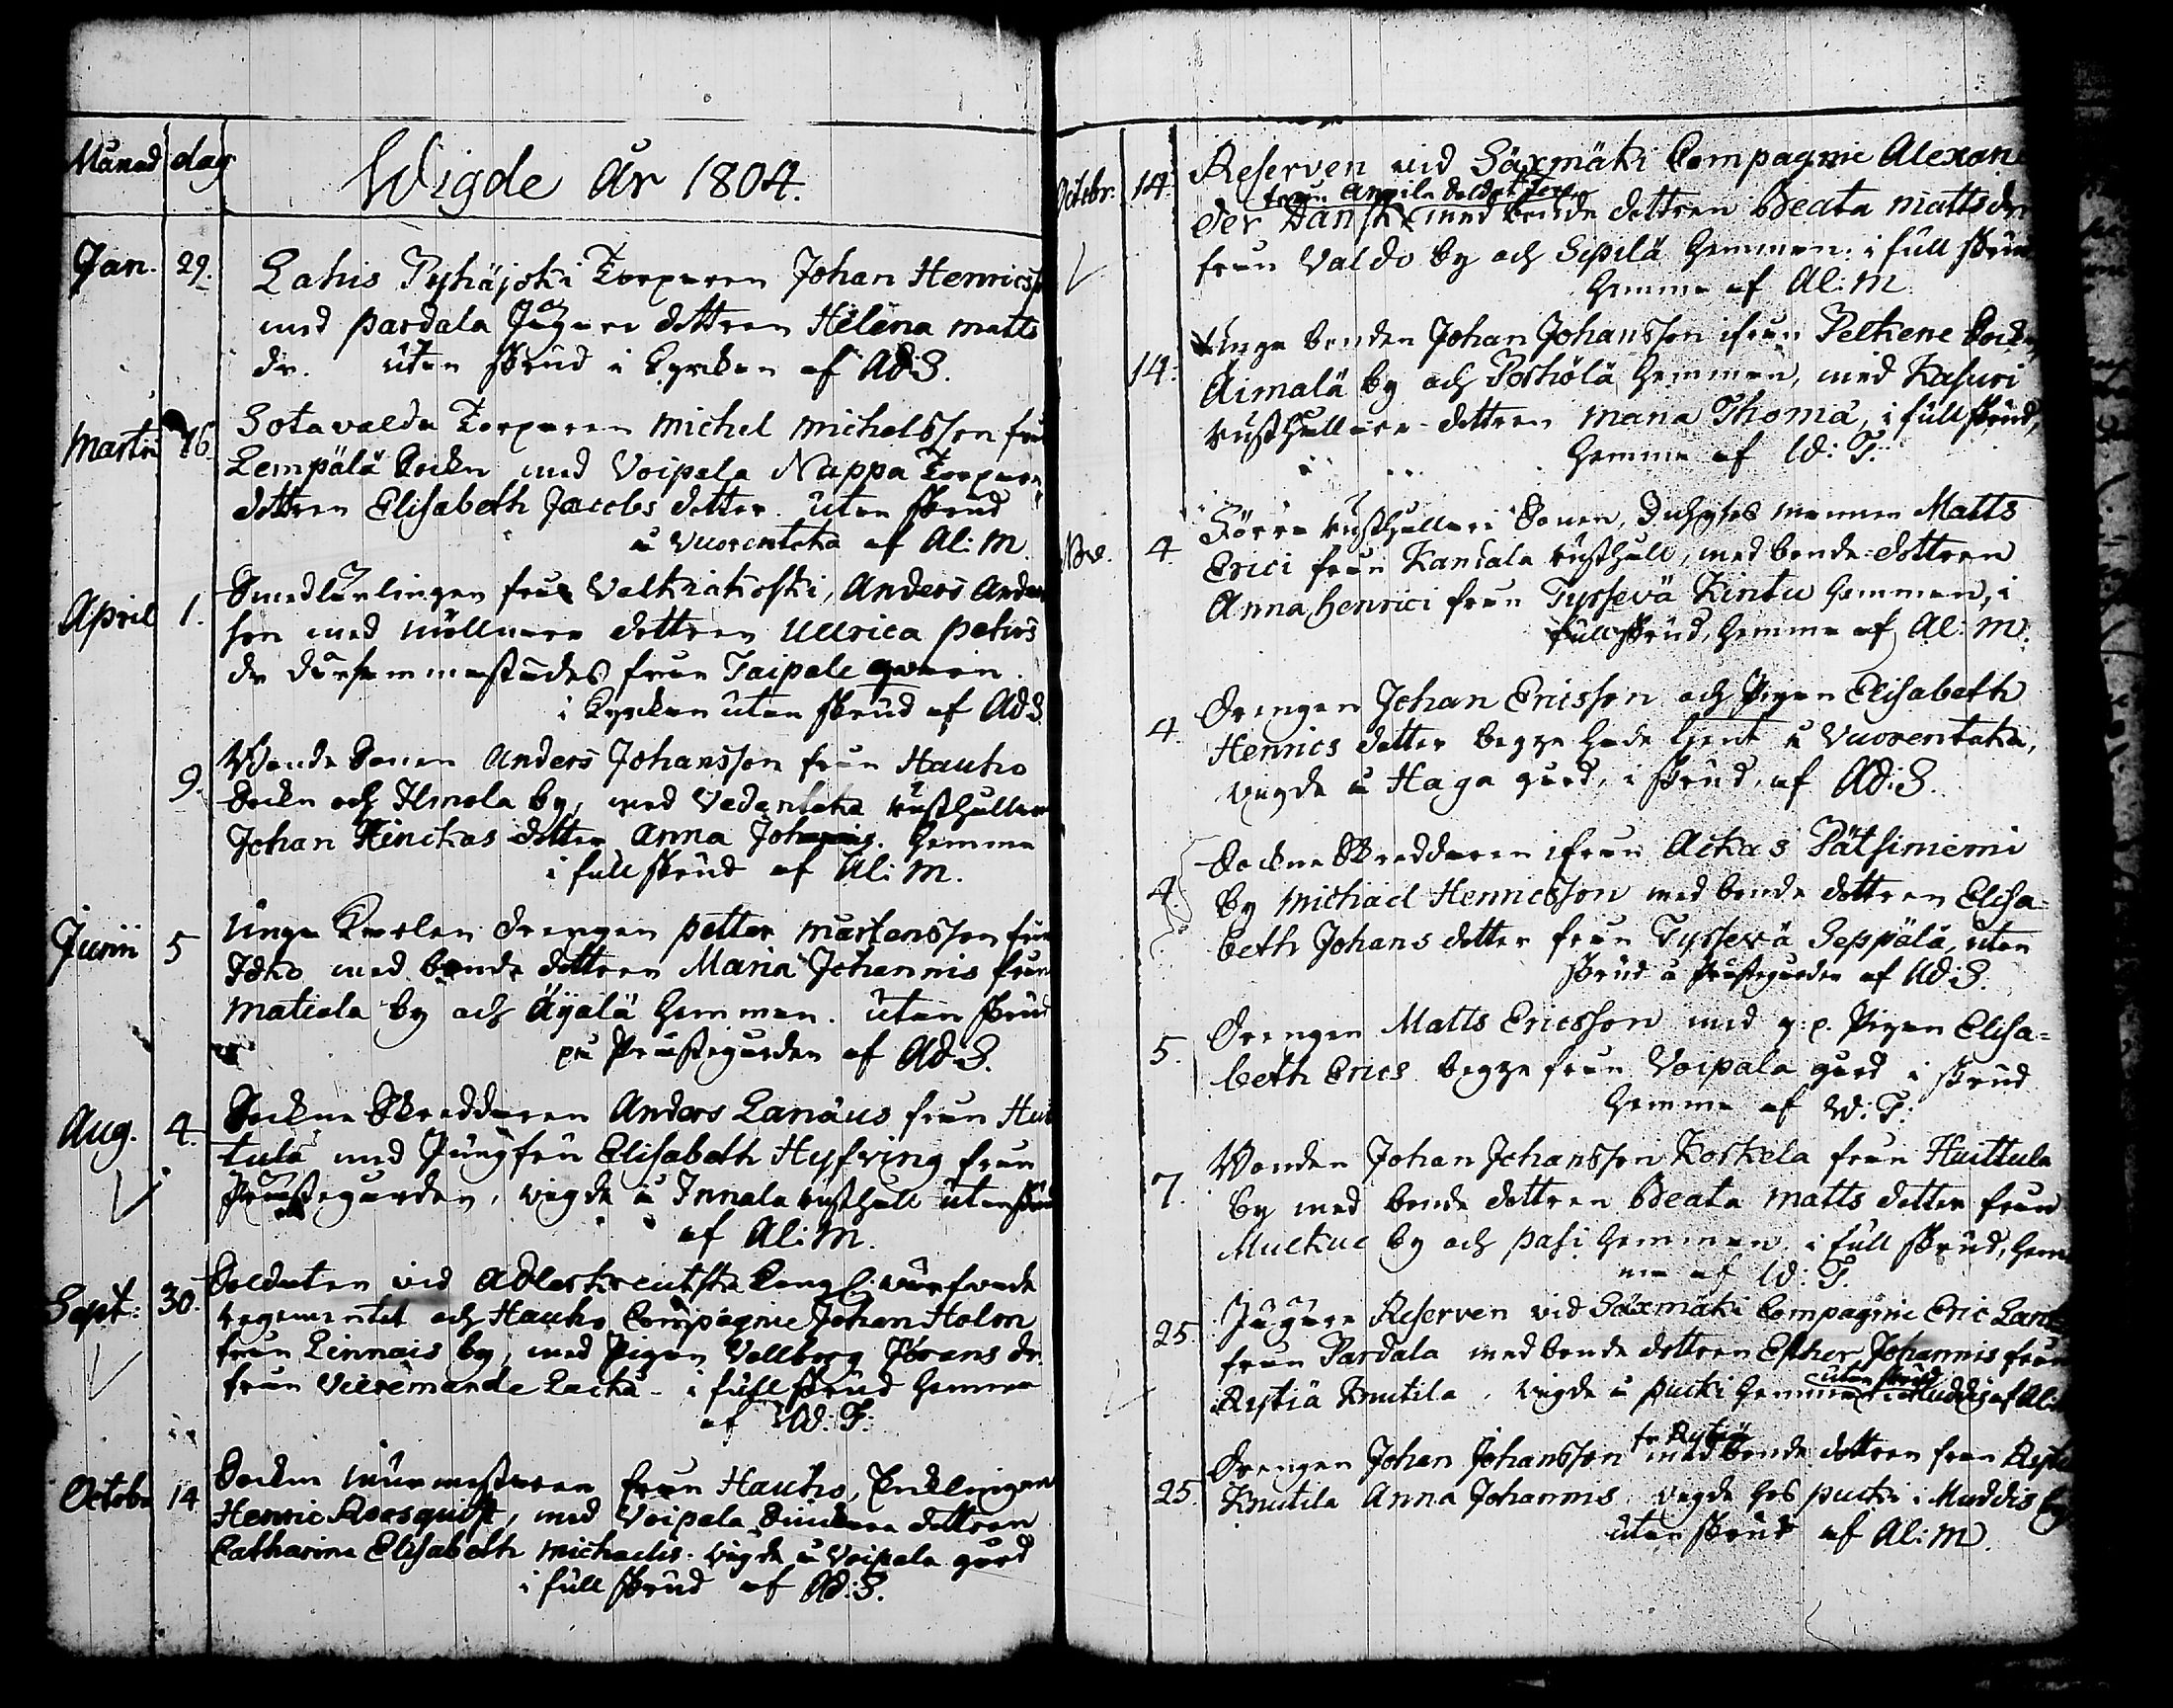 Månad dag
Wigde år 1804.
Jan. 29. Lahis Pyhäjoki Torparen Johan Henricss
med pardala Jägare dottren Helena matts
dr. utan skrud i Kyrckan af Ad:S.
Martii 16. Sotavalda Torparen Michel Michelsson från
Lempälä Sockn med Voipala Nappa Torpare
dottren Elisabeth Jacobs dotter. utan skrud
å Vuorentaka af Al: M.
April 1. Smedlärlingen från Valkiakoski, Anders Anders
son med möllnare dottren Ullrica pehrs
dr därsammastädes från Taipale qvarn.
i Kyrckan utan skrud af Ad S.
9. Bonde Sonen Anders Johansson från Hauho
Sockn och Ilmola by, med Vedentaka rusthållare
Johan Hinckas dotter Anna Johannis. hemma
i full skrud af Al: M.
Junii 5 Unga Karlen drengen petter mårtensson från
Idko med bonde dottren Maria Johannis från
Matiala by och Äyälä hemman. utan skrud
på Prästegården af Ad:S.
Aug. 4. Sockne Skreddaren Anders Lanäus från Huit
tula med Jungfru Elisabeth Hyfving från
Prästegården, wigde å Innala rusthåll utan skrud
af Al: M.
Sept: 30. Soldaten vid Adlerkreutzska Kongl: värfvade
regementet och Hauho Compagnie Johan Holm
från Linnais by, med Pigan Vallborg Jörans dr.
från Lacka - i full skrud hemma
af W: T:
Octobr 14 Sockne murmästaren från Hauho, Encklingen
Henric Roosquist, med Voipala dottren
Catharina Elisabeth Michaelis. wigde å Voipala gård
i full skrud af Ad:S.
Octobr. 14. Reserven vid Säxmäki Compagnie Alexan
der Dansk med bonde dottren Beata matts dr
från Valdo by och Sipilä hemman. i full skrud
hemma af Al: M.
14. Unga bonden Johan Johansson ifrån Pelkene Sockn
Aimalä by och Poshölä hemman, med Kasuri
rusthållare-dottren Maria Thomä, i full skrud,
hemma af W: T:
Nov. 4. Förra rusthållare Sonen, Matts
Erici från Kansala rusthåll, med bonde-dottren
Anna Henrici från Tyrsevä Kintu hemman, i
full skrud, hemma af Al: M.
4. Drengen Johan Ericsson och Pigan Elisabeth
Henrics dotter begge hade tjent å Vuorentaka,
wigde å Haga gård, i skrud, af Ad:S.
4. Sockne Skreddaren ifrån Ackas Pätsiniemi
by Michael Henricsson med bonde dottren Elisa=
beth Johans dotter från Tyrsevä Seppälä, utan
skrud å Prästegården af Ad:S.
5. Drengen Matts Ericsson med g: p. Pigan Elisa=
beth Erics begge från Voipala gård i skrud
hemma af W: T:
7. Bonden Johan Johansson Koskela från Huittula
by med bonde dottren Beata matts dotter från
Muckuc by och pasi hemman. i full skrud, hem
ma af W: T.
25. Jägare Reserven vid Säxmäki Compagnie Eric
från Pardala med bonde dottren Esther Johannis från
utan skrud
Rytiä Knutila, wigde å pucki hemman i Muddis af Al:
fr Rytiö
25. Drengen Johan Johansson med bonde dottren från
Knutila Anna Johannis, wigde hos pucki i Muddis by
utan skrud af Al: M.